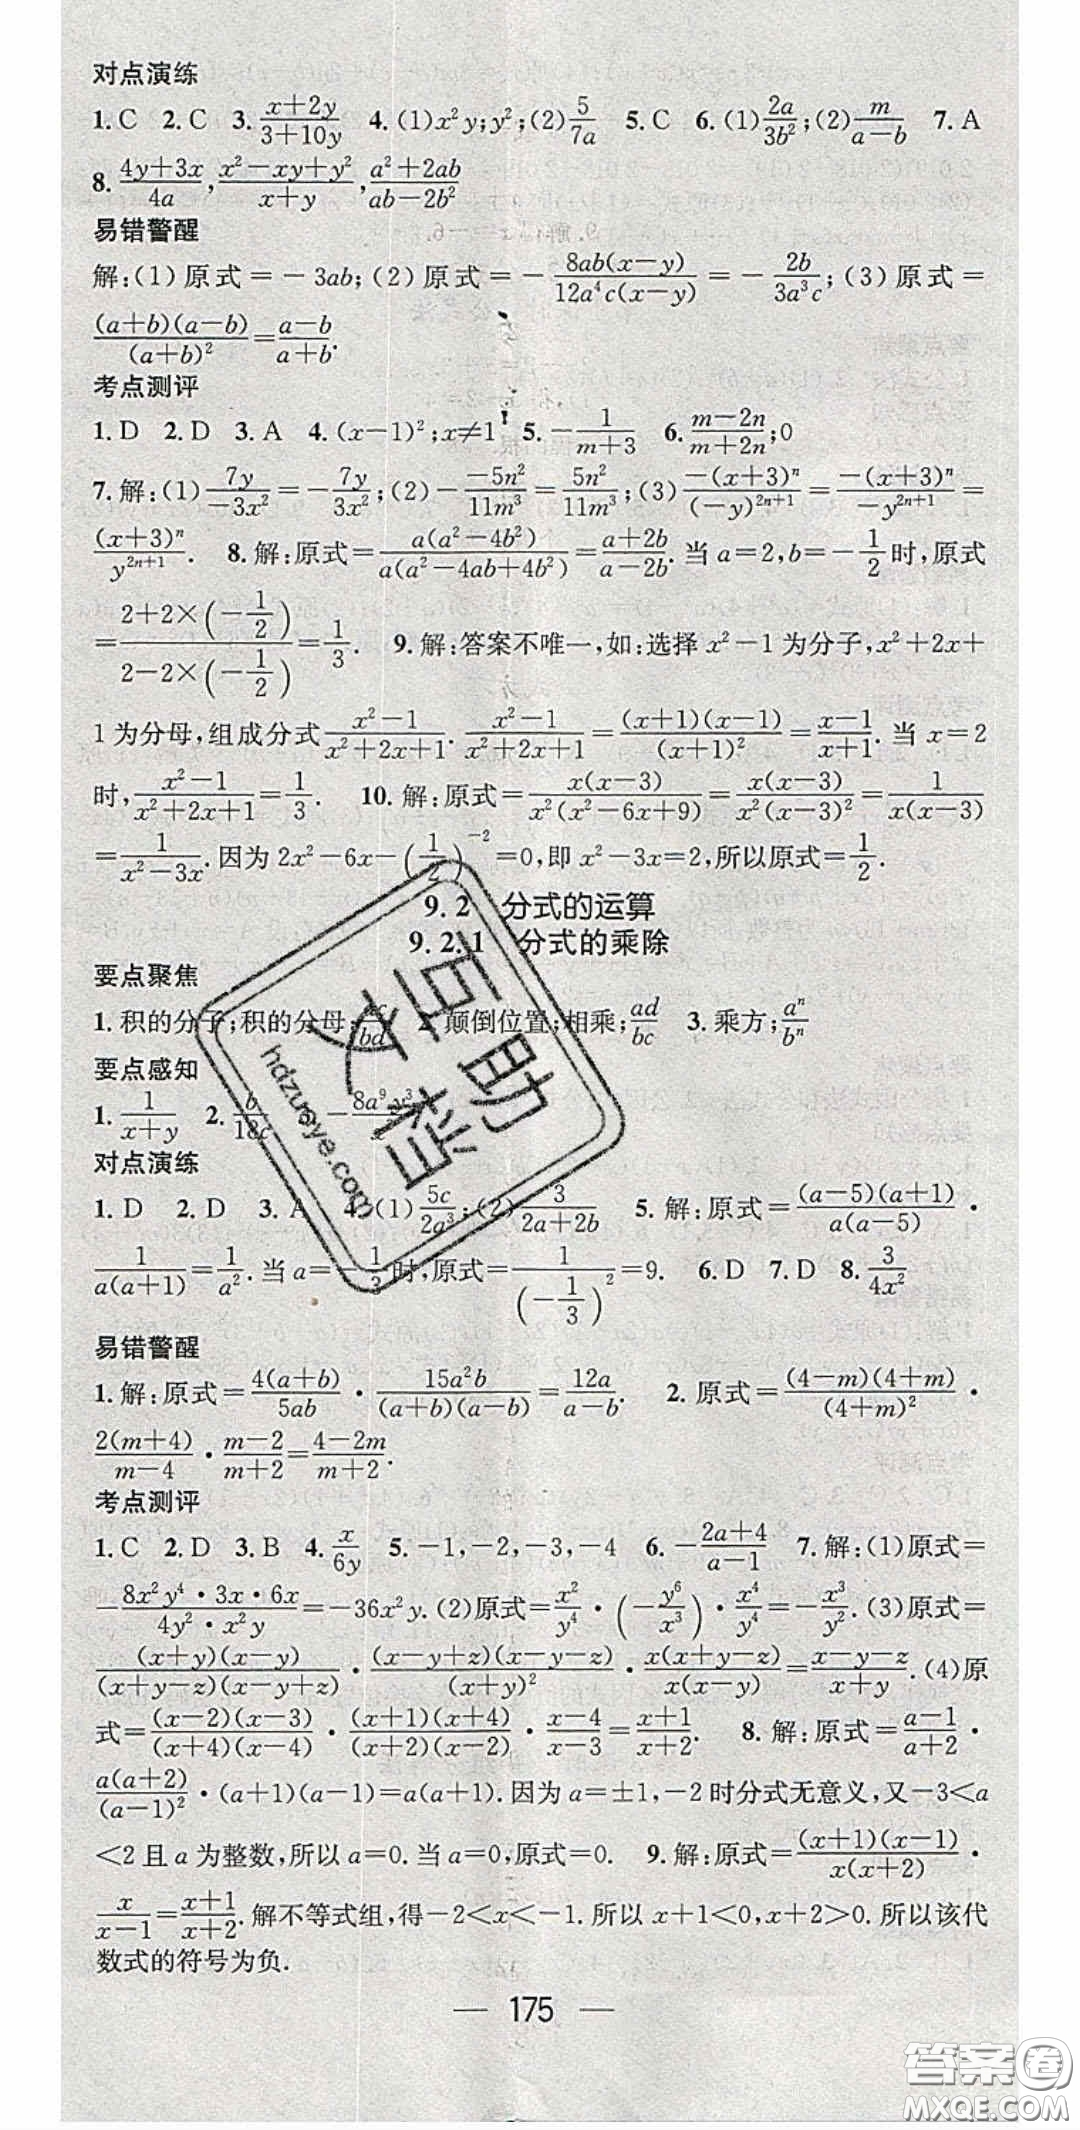 对点演练
1. C 2. C 3. (x+2y)/(3+10y) 4. (1)x²y;y²;(2)5/(7a) 5. C 6. (1)2a/(3b²);(2)m/(a-b) 7. A
8. (4y+3x)/(4a),(x²-xy+y²)/(x+y),(a²+2ab)/(ab-2b²)
易错警醒
解:(1)原式=-3ab;(2)原式=-8ab(x-y)/(12a⁴c(x-y))=-2b/(3a³c);(3)原式=
(a+b)(a-b)/(a+b)²=(a-b)/(a+b).
考点测评
1. D 2. D 3. A 4. (x-1)²;x≠1 5. -1/(m+3) 6. (m-2n)/(m+2n);0
7. 解:(1)7y/(-3x²)=-7y/(3x²);(2)-(-5n²)/(11m³)=5n²/(11m³);(3)-(x+3)ⁿ/(-y)²ⁿ⁺¹=-(x+3)ⁿ/(-y²ⁿ⁺¹)=
(x+3)ⁿ/y²ⁿ⁺¹. 8. 解:原式=a(a²-4b²)/(a(a²-4ab+4b²))=(a+2b)/(a-2b).当a=2,b=-1/2时,原式
=(2+2×(-1/2))/(2-2×(-1/2))=1/3. 9. 解:答案不唯一,如:选择x²-1为分子,x²+2x+
1为分母,组成分式(x²-1)/(x²+2x+1).(x²-1)/(x²+2x+1)=(x+1)(x-1)/(x+1)²=(x-1)/(x+1).当x=2
时,(x²-1)/(x²+2x+1)=1/3. 10. 解:原式=x(x-3)/(x²(x²-6x+9))=x(x-3)/(x²(x-3)²)=1/(x(x-3))
=1/(x²-3x).因为2x²-6x-(1/2)⁻²=0,即x²-3x=2,所以原式=1/2.
9.2 分式的运算
9.2.1 分式的乘除
要点聚焦
1. 积的分子;积的分母;ac/bd 2. 颠倒位置;相乘;ad/bc 3. 乘方;aⁿ/bⁿ
要点感知
1. 1/(x+y) 2. b/(18c) 3. -8a⁹y³/x
对点演练
1. D 2. D 3. A 4. (1)5c/(2a³);(2)3/(2a+2b) 5. 解:原式=(a-5)(a+1)/(a(a-5))·
1/(a(a+1))=1/a².当a=-1/3时,原式=1/(-1/3)²=9. 6. D 7. D 8. 3/(4x²)
易错警醒
1. 解:原式=4(a+b)/(5ab)·15a²b/((a+b)(a-b))=12a/(a-b). 2. 原式=(4-m)(4+m)/(4+m)²·
2(m+4)/(m-4)·(m-2)/(m+2)=(4-2m)/(m+2).
考点测评
1. C 2. D 3. B 4. x/(6y) 5. -1,-2,-3,-4 6. -(2a+4)/(a-1) 7. 解:(1)原式=
-8x²y⁴·3x·6x/(4y²·x²y)=-36x²y.(2)原式=x²/y⁴·(-y⁶/x³)·x⁴/y⁴=-x³/y².(3)原式=
(x+y)(x-y)/((x+y-z)(x-y+z))·(x-y+z)(x-y-z)/(x+y)²·x(x+y-z)/(x(x-y))=(x-y-z)/(x+y).(4)原
式=(x-2)(x-3)/((x+4)(x-4))·(x+1)(x+4)/((x+2)(x-2))·(x-4)/(x-3)=(x+1)/(x+2). 8. 解:原式=(a-1)/(a+2)·
a(a+2)/(a-1)²·(a+1)(a-1)=a(a+1).因为a=±1,-2时分式无意义,又-3<a
<2且a为整数,所以a=0.当a=0,原式=0. 9. 解:原式=(x+1)(x-1)/(x(x+2))·
x/(x-1)=(x+1)/(x+2).解不等式组,得-2<x<-1.所以x+1<0,x+2>0.所以该代
数式的符号为负.
— 175 —
互助文档
hdzuoye.com
答案圈
MXQE.COM